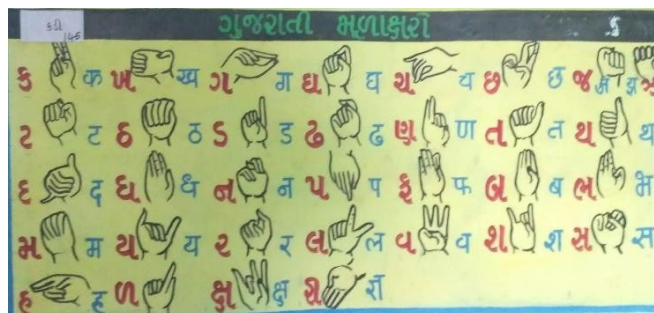 કડી
145
ગુજરાતી મૂળાક્ષરો
ક क ખ ख ગ ग ઘ घ ચ च છ छ જ ज झ
ટ ट ઠ ठ ડ ड ઢ ढ ણ ण ત त થ थ
દ द ધ ध ન न પ प ફ फ બ ब ભ भ
મ म ય य ર र લ ल વ व શ श સ स
હ ह ળ ક્ષ क्ष જ્ઞ ज्ञ